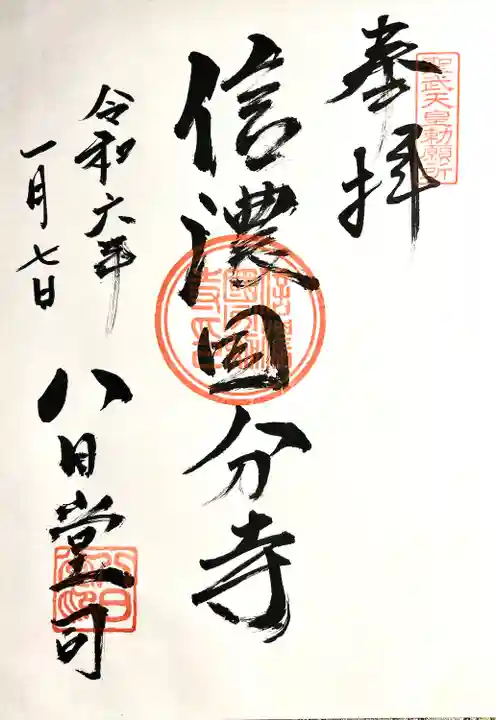 奉拝
聖武天皇勅願所
信濃国分寺
令和六年
一月七日
八日堂司